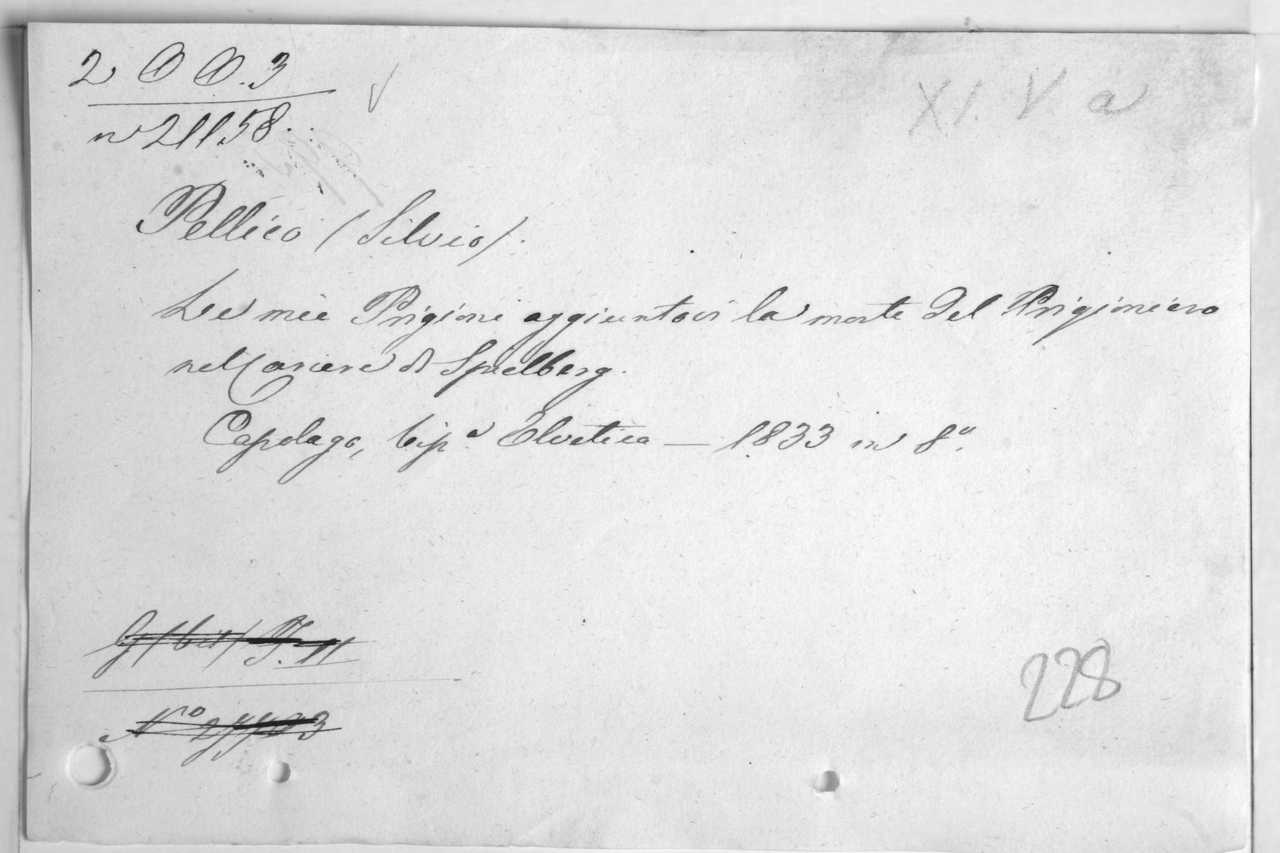 2 O O. 3
XI. V a
n 21158.
Pellico (Silvio).
Le mie Prigioni aggiuntovi la morte del Prigioniero
nel Carcere di Spielberg.
Capolago, tip.ª Elvetica — 1833 in 8º.
228
Nro